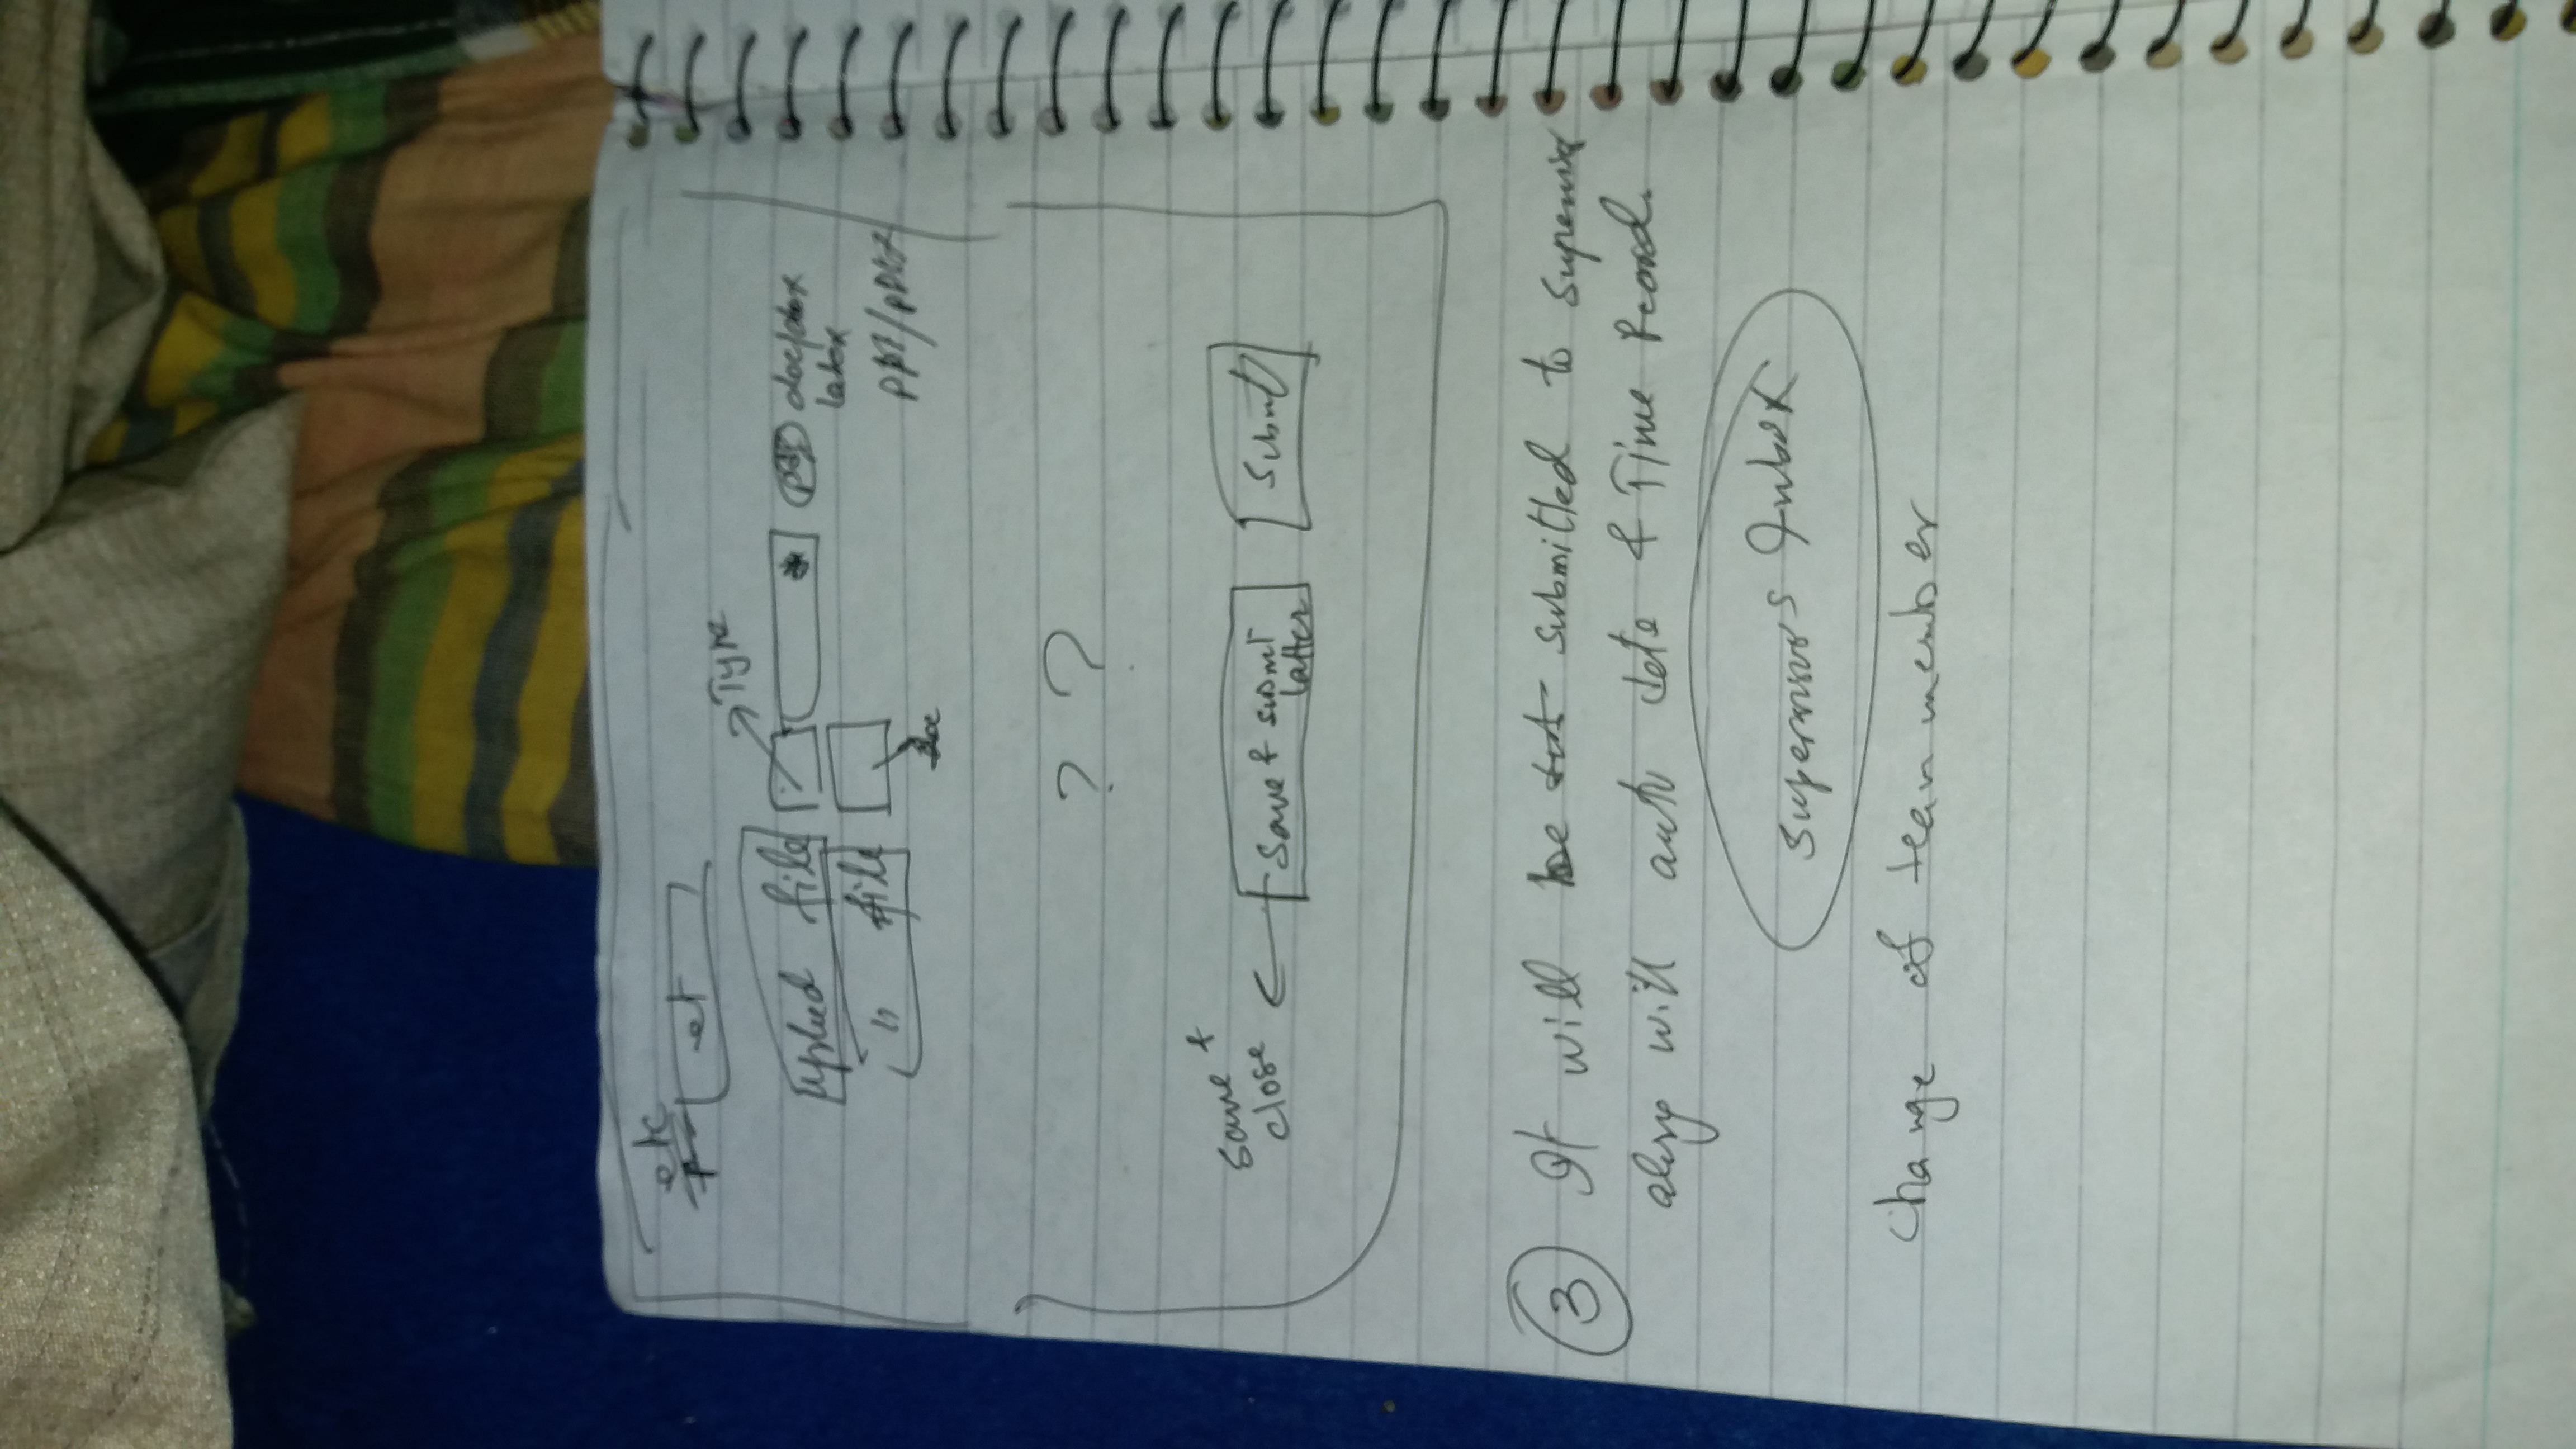 etc
et
Type
upload file * pdf doc/dox
latex
" file ppt/pptx
Doc
? ?
Save &
close
Save & submit
latter
Submit
3 It will be submitted to supervisor
along with auto date & Time Record.
Supervisor's Inbox
Change of team member